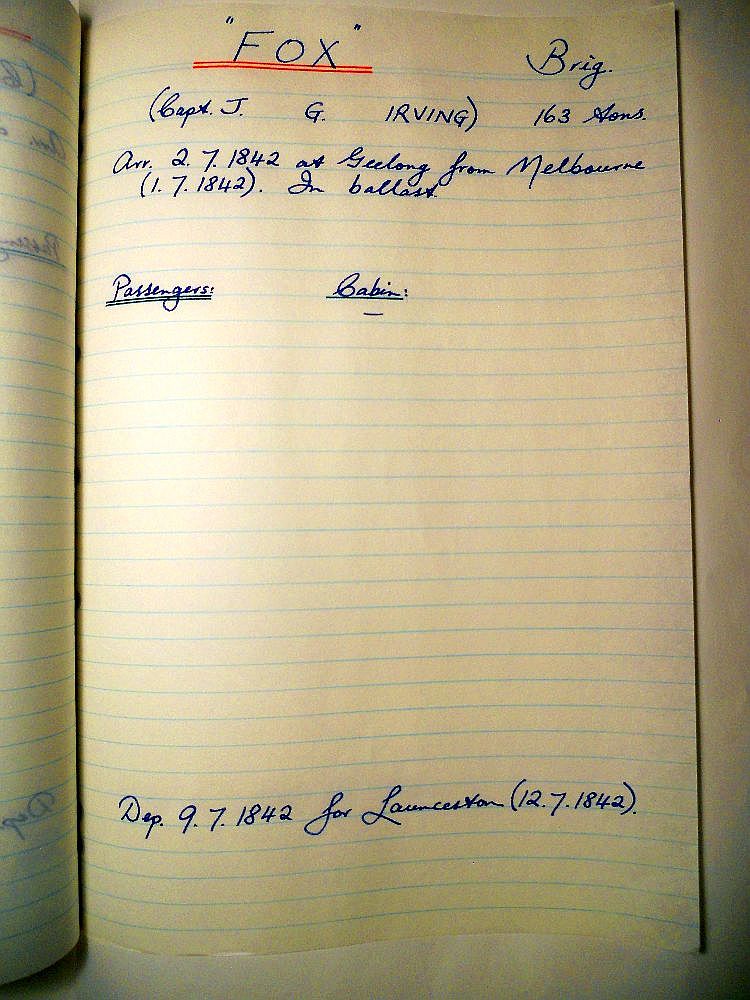 "FOX" Brig.
(Capt. J. G. IRVING) 163 tons.
Arr. 2.7.1842 at Geelong from Melbourne
(1.7.1842). In ballast.
Passengers: Cabin:
—
Dep. 9.7.1842 for Launceston (12.7.1842).